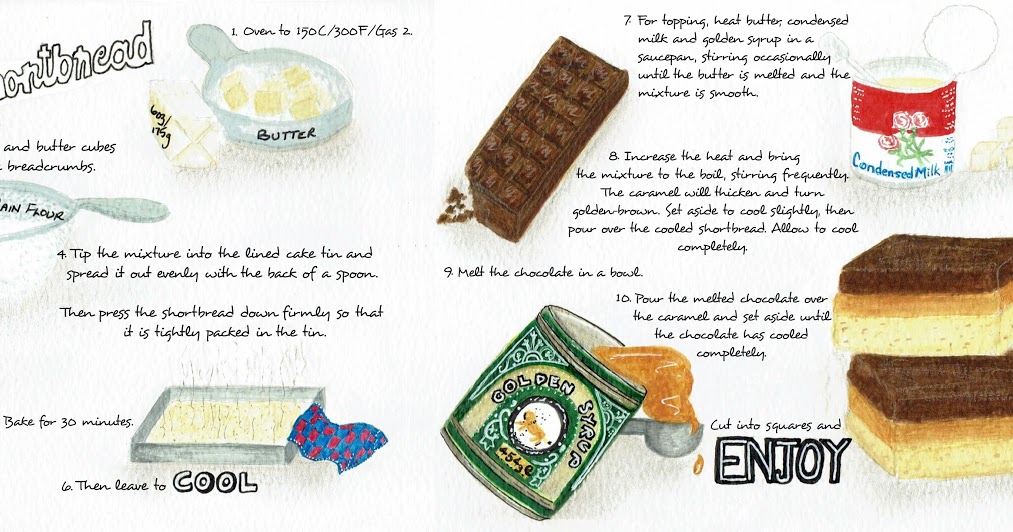 ortbread
1. Oven to 150C/300F/Gas 2.
6oz/
175g
BUTTER
and butter cubes
breadcrumbs.
AIN FLOUR
4. Tip the mixture into the lined cake tin and
spread it out evenly with the back of a spoon.
Then press the shortbread down firmly so that
it is tightly packed in the tin.
Bake for 30 minutes.
6. Then leave to COOL
7. For topping, heat butter, condensed
milk and golden syrup in a
saucepan, stirring occasionally
until the butter is melted and the
mixture is smooth.
Condensed Milk
8. Increase the heat and bring
the mixture to the boil, stirring frequently.
The caramel will thicken and turn
golden-brown. Set aside to cool slightly, then
pour over the cooled shortbread. Allow to cool
completely.
9. Melt the chocolate in a bowl.
10. Pour the melted chocolate over
the caramel and set aside until
the chocolate has cooled
completely.
GOLDEN
SYRUP
454g e
Cut into squares and
ENJOY